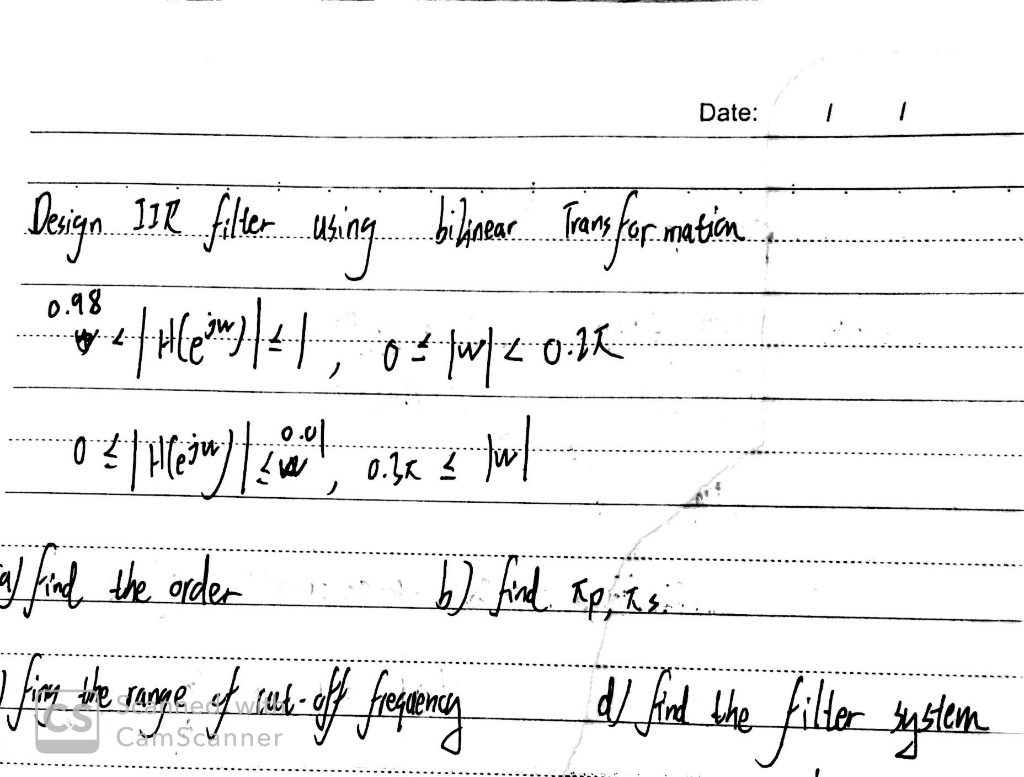 Date: / /
Design IIR filter using bilinear Transformation
0.98 < |H(e^jw)| ≤ 1, 0 ≤ |w| < 0.2π
0 ≤ |H(e^jw)| ≤ 0.01, 0.3π ≤ |w|
a) find the order b) find πp, πs.
) fing the range of cut-off frequency d) find the filter system
CS Scanned with
CamScanner